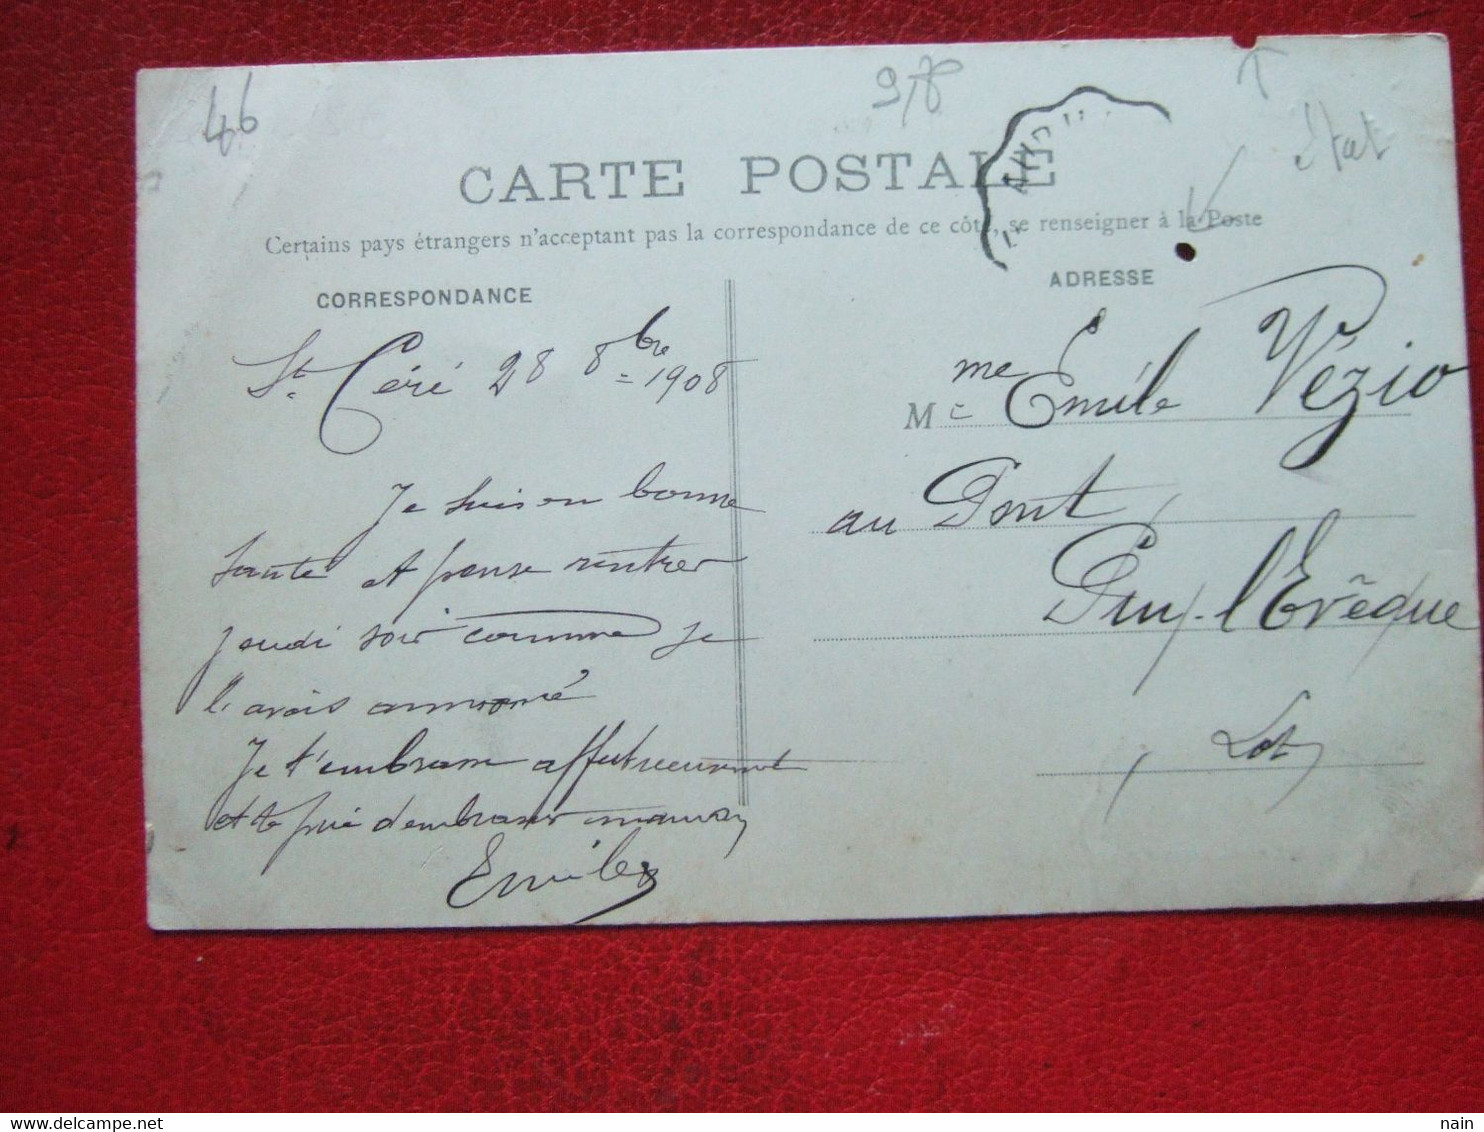 46
état
CARTE POSTALE
Certains pays étrangers n'acceptant pas la correspondance de ce côté, se renseigner à la Poste
CORRESPONDANCE
St Céré 28 8bre 1908
Je suis en bonne
santé et pense rentrer
jeudi soir comme je
l'avais annoncé
Je t'embrasse affectueusement
et te prie d'embrasser maman
Emile
ADRESSE
Mme Emile Vézio
au Pont
Puy-l'Évêque
Lot
nain